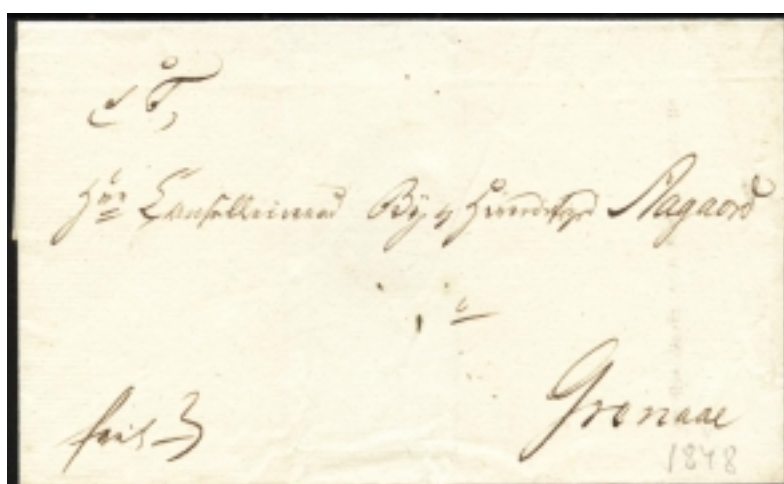 S. T.
Hrr Cancelliraad By &amp; Herredsfgd Aagaard
i
Grenaae
frit
1848